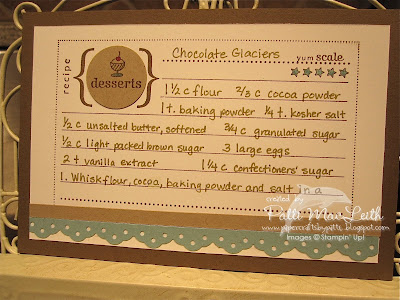 Chocolate Glaciers
yum scale
recipe
desserts
1 1/2 c flour 2/3 c cocoa powder
1 t. baking powder 1/4 t. kosher salt
1/2 c unsalted butter, softened 3/4 c granulated sugar
1/2 c light packed brown sugar 3 large eggs
2 t vanilla extract 1 1/4 c confectioners' sugar
1. Whisk flour, cocoa, baking powder and salt in a
created by
Patti MacLeith
www.papercraftsbypatti.blogspot.com
Images © Stampin' Up!